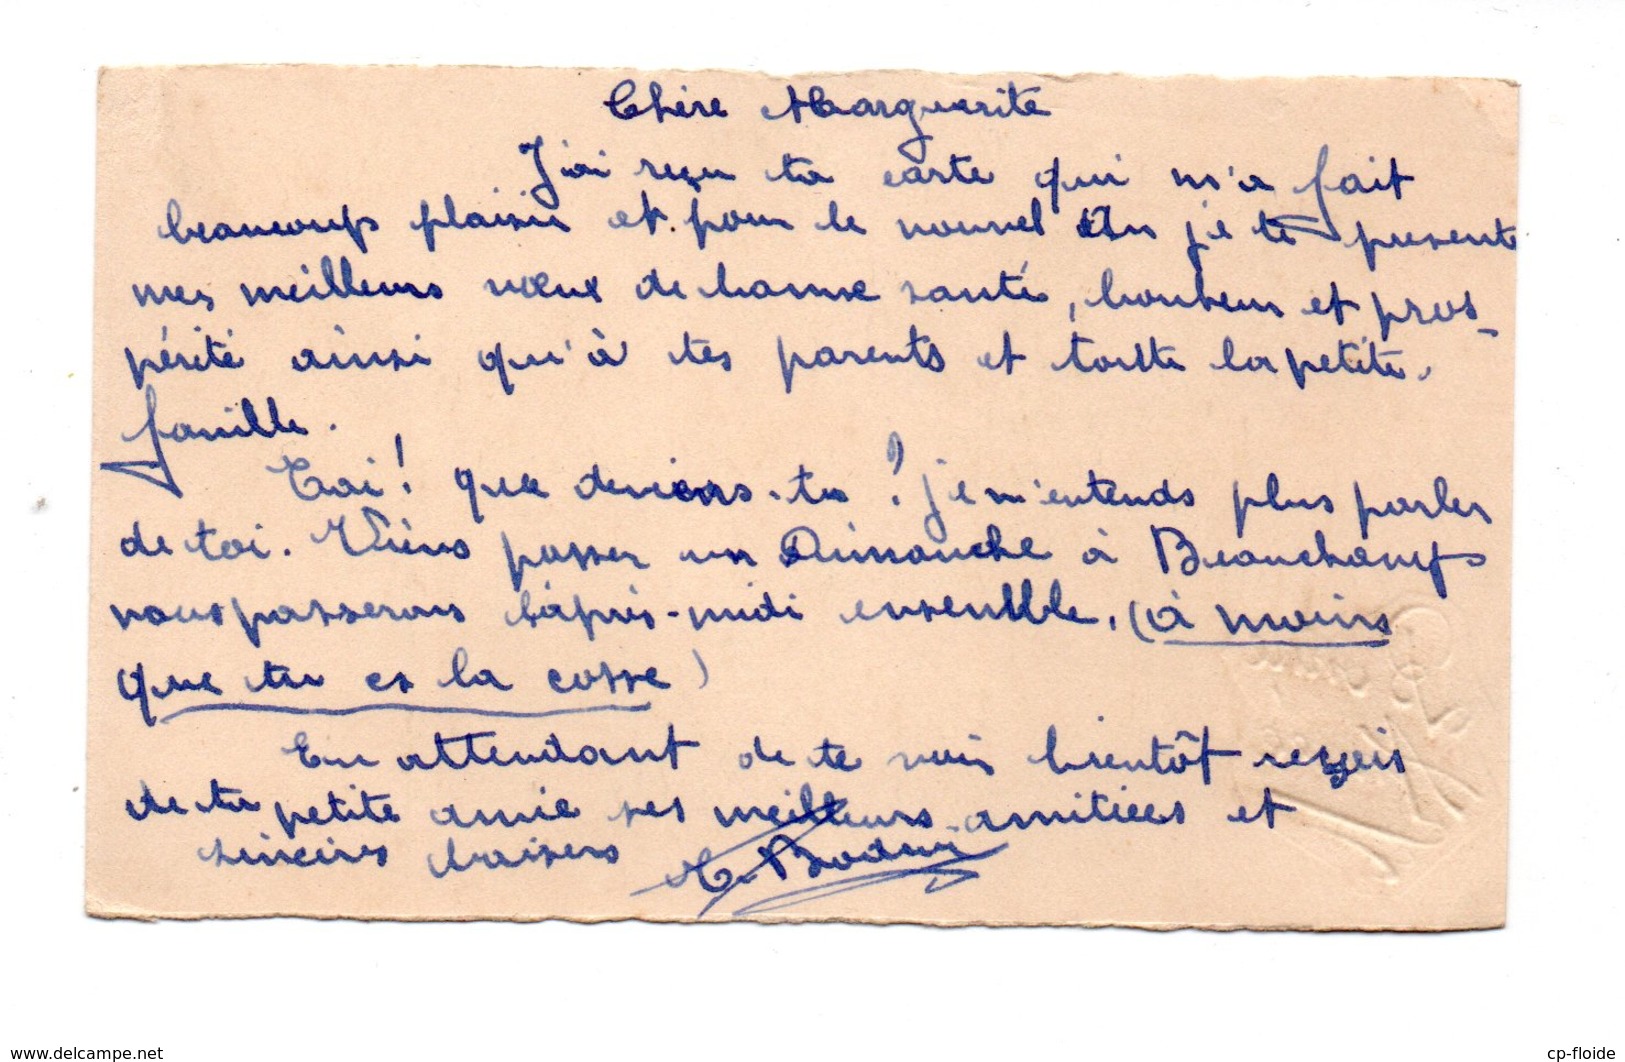 Chère Marguerite
J'ai reçu ta carte qui m'a fait
beaucoup plaisir et pour le nouvel An je te presente
mes meilleurs vœux de bonne santé, bonheur et pros-
périté ainsi qu'à tes parents et toute la petite
famille.
Toi! que deviens-tu ? je m'entends plus parler
de toi. Viens passer un Dimanche à Beauchamps
nous passerons l'après-midi ensemble, (à moins
que tu es la cosse)
En attendant de te voir bientôt reçois
de ta petite amie ses meilleurs amitiées et
sincères baisers
www.delcampe.net
cp-floide